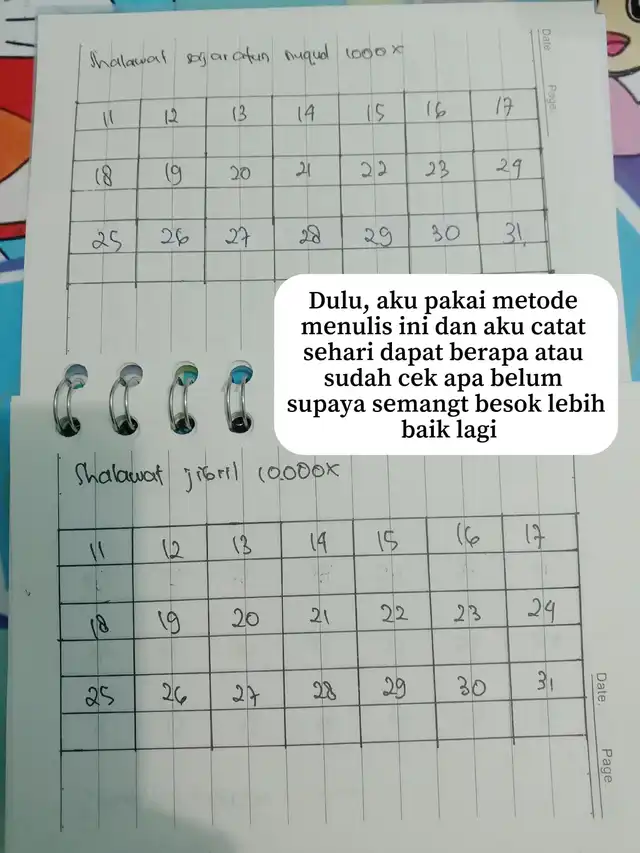 Shalawat sajaratun nuqud 1000x
Date
Page
11 12 13 14 15 16 17
18 19 20 21 22 23 24
25 26 27 28 29 30 31
Dulu, aku pakai metode
menulis ini dan aku catat
sehari dapat berapa atau
sudah cek apa belum
supaya semangt besok lebih
baik lagi
Shalawat jibril 10.000x
11 12 13 14 15 16 17
18 19 20 21 22 23 24
25 26 27 28 29 30 31
Date.
Page